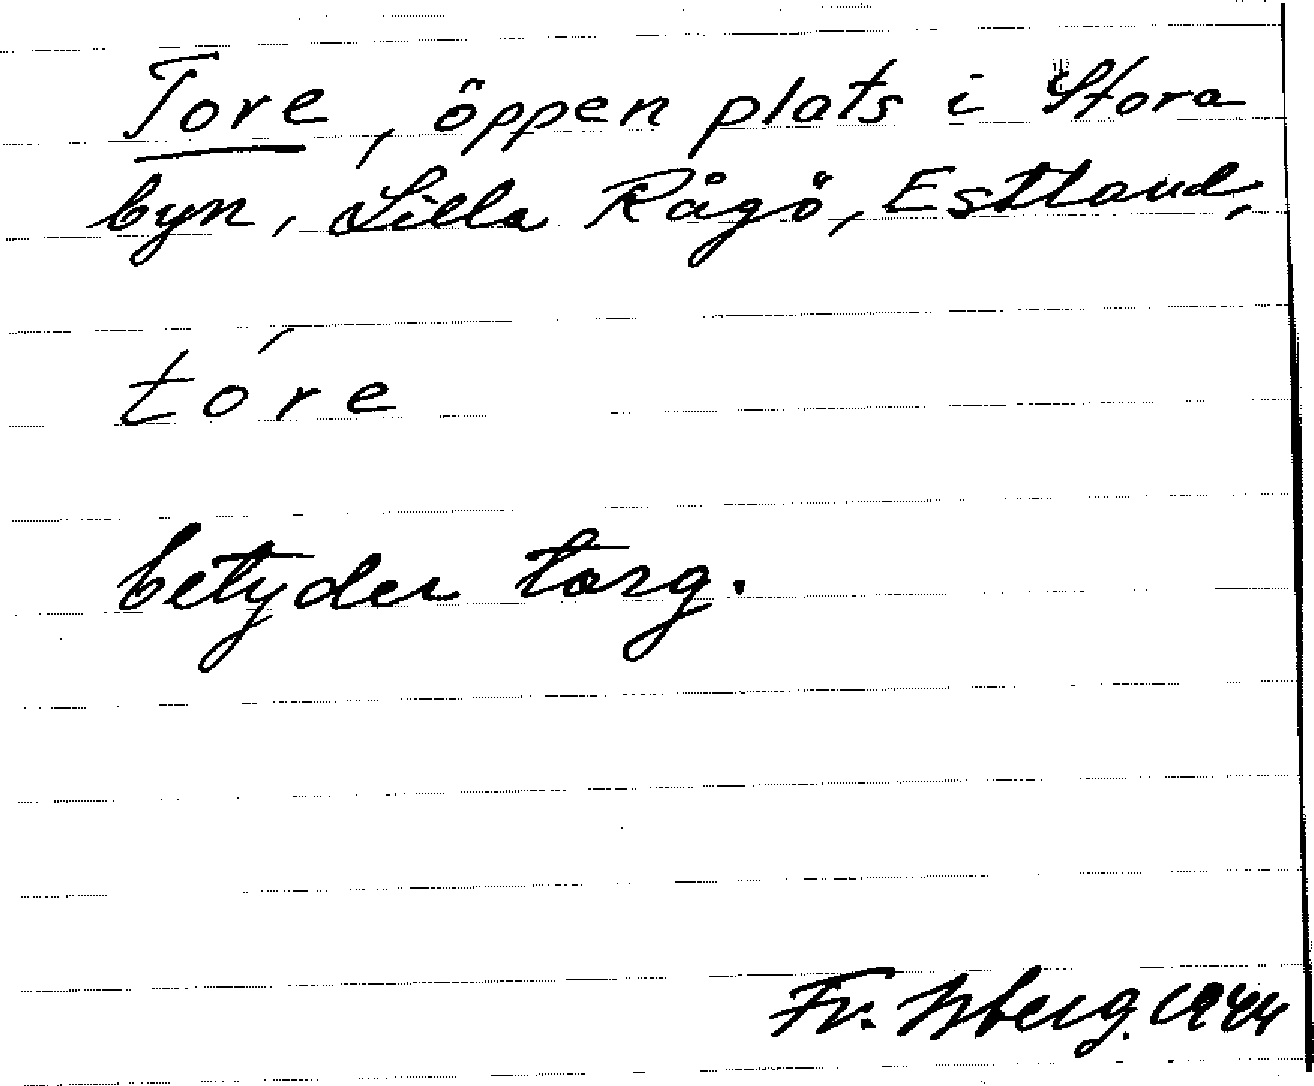 Tore, öppen plats i Stora
byn, Lilla Rågö, Estland,
tóre
betyder torg.
Fr. Isberg. 1944